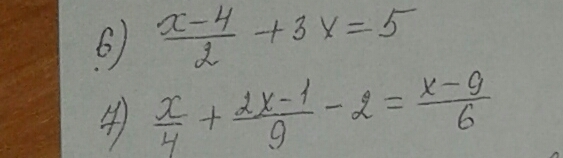 6.) (x-4)/2 + 3x = 5
7) x/4 + (2x-1)/9 - 2 = (x-9)/6